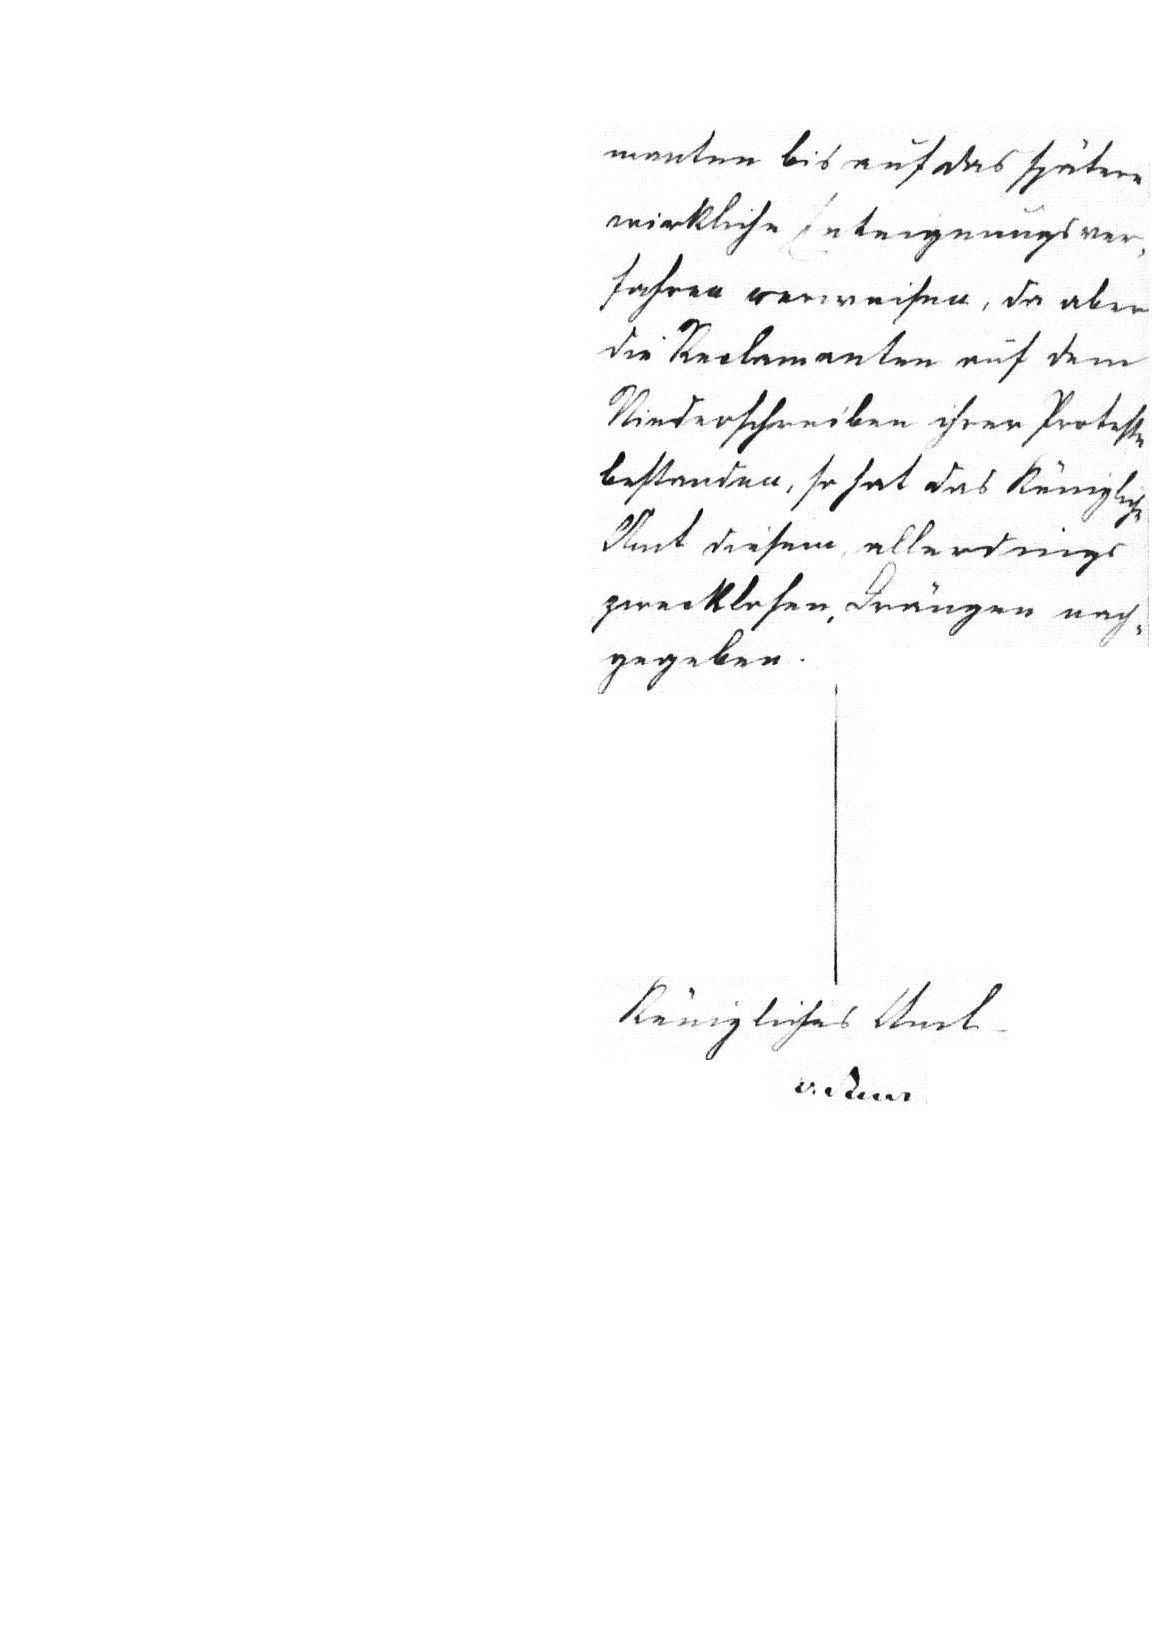 manten bis auf das spätere
wirkliche Enteignungsver-
fahren verweisen, da aber
die Reclamanten auf dem
Niederschreiben ihrer Proteste
bestanden, so hat das Königliche
Amt diesem, allerdings
zwecklosen, Drängen nach-
gegeben.
Königliches Amt.
v.